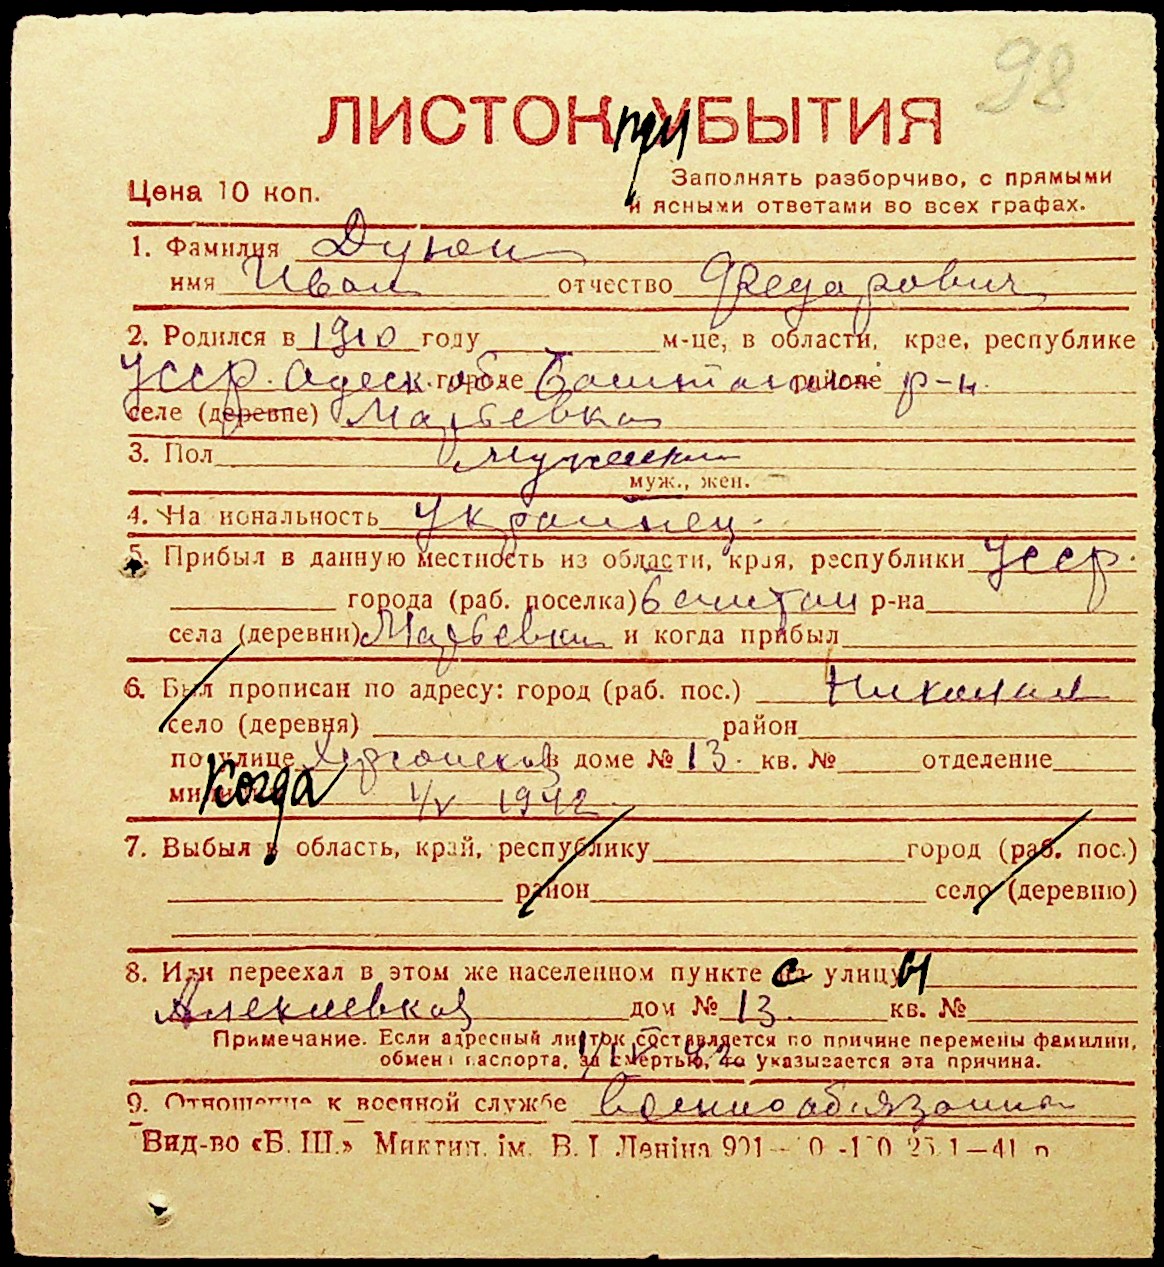 98
ЛИСТОК при УБЫТИЯ
Цена 10 коп.
Заполнять разборчиво, с прямыми
и ясными ответами во всех графах.
1. Фамилия
имя Иван отчество Федарович
2. Родился в 1910 году м-це, в области, крае, республике
УССР. Адеск. об городе Баштанском районе р-н.
селе (деревне) Матвевка
3. Пол мужской
муж., жен.
4. На иональность Украинец.
5. Прибыл в данную местность из области, края, республики УССР.
города (раб. поселка) Баштан р-на
села (деревни) Матвевки и когда прибыл
6. Был прописан по адресу: город (раб. пос.) Николаев
село (деревня) район
по улице Херсонская в доме № 13. кв. № отделение
Когда 1/V 1942
7. Выбыл в область, край, республику город (раб. пос.)
район село (деревню)
8. Или переехал в этом же населенном пункте с улицы
дом № 13. кв. №
Примечание. Если адресный листок составляется по причине перемены фамилии,
обмен паспорта, за смертью, то указывается эта причина.
9. Отношение к военной службе Военнообязанный
Вид-во «Б. Ш.» Миктип. ім. В. І Леніна